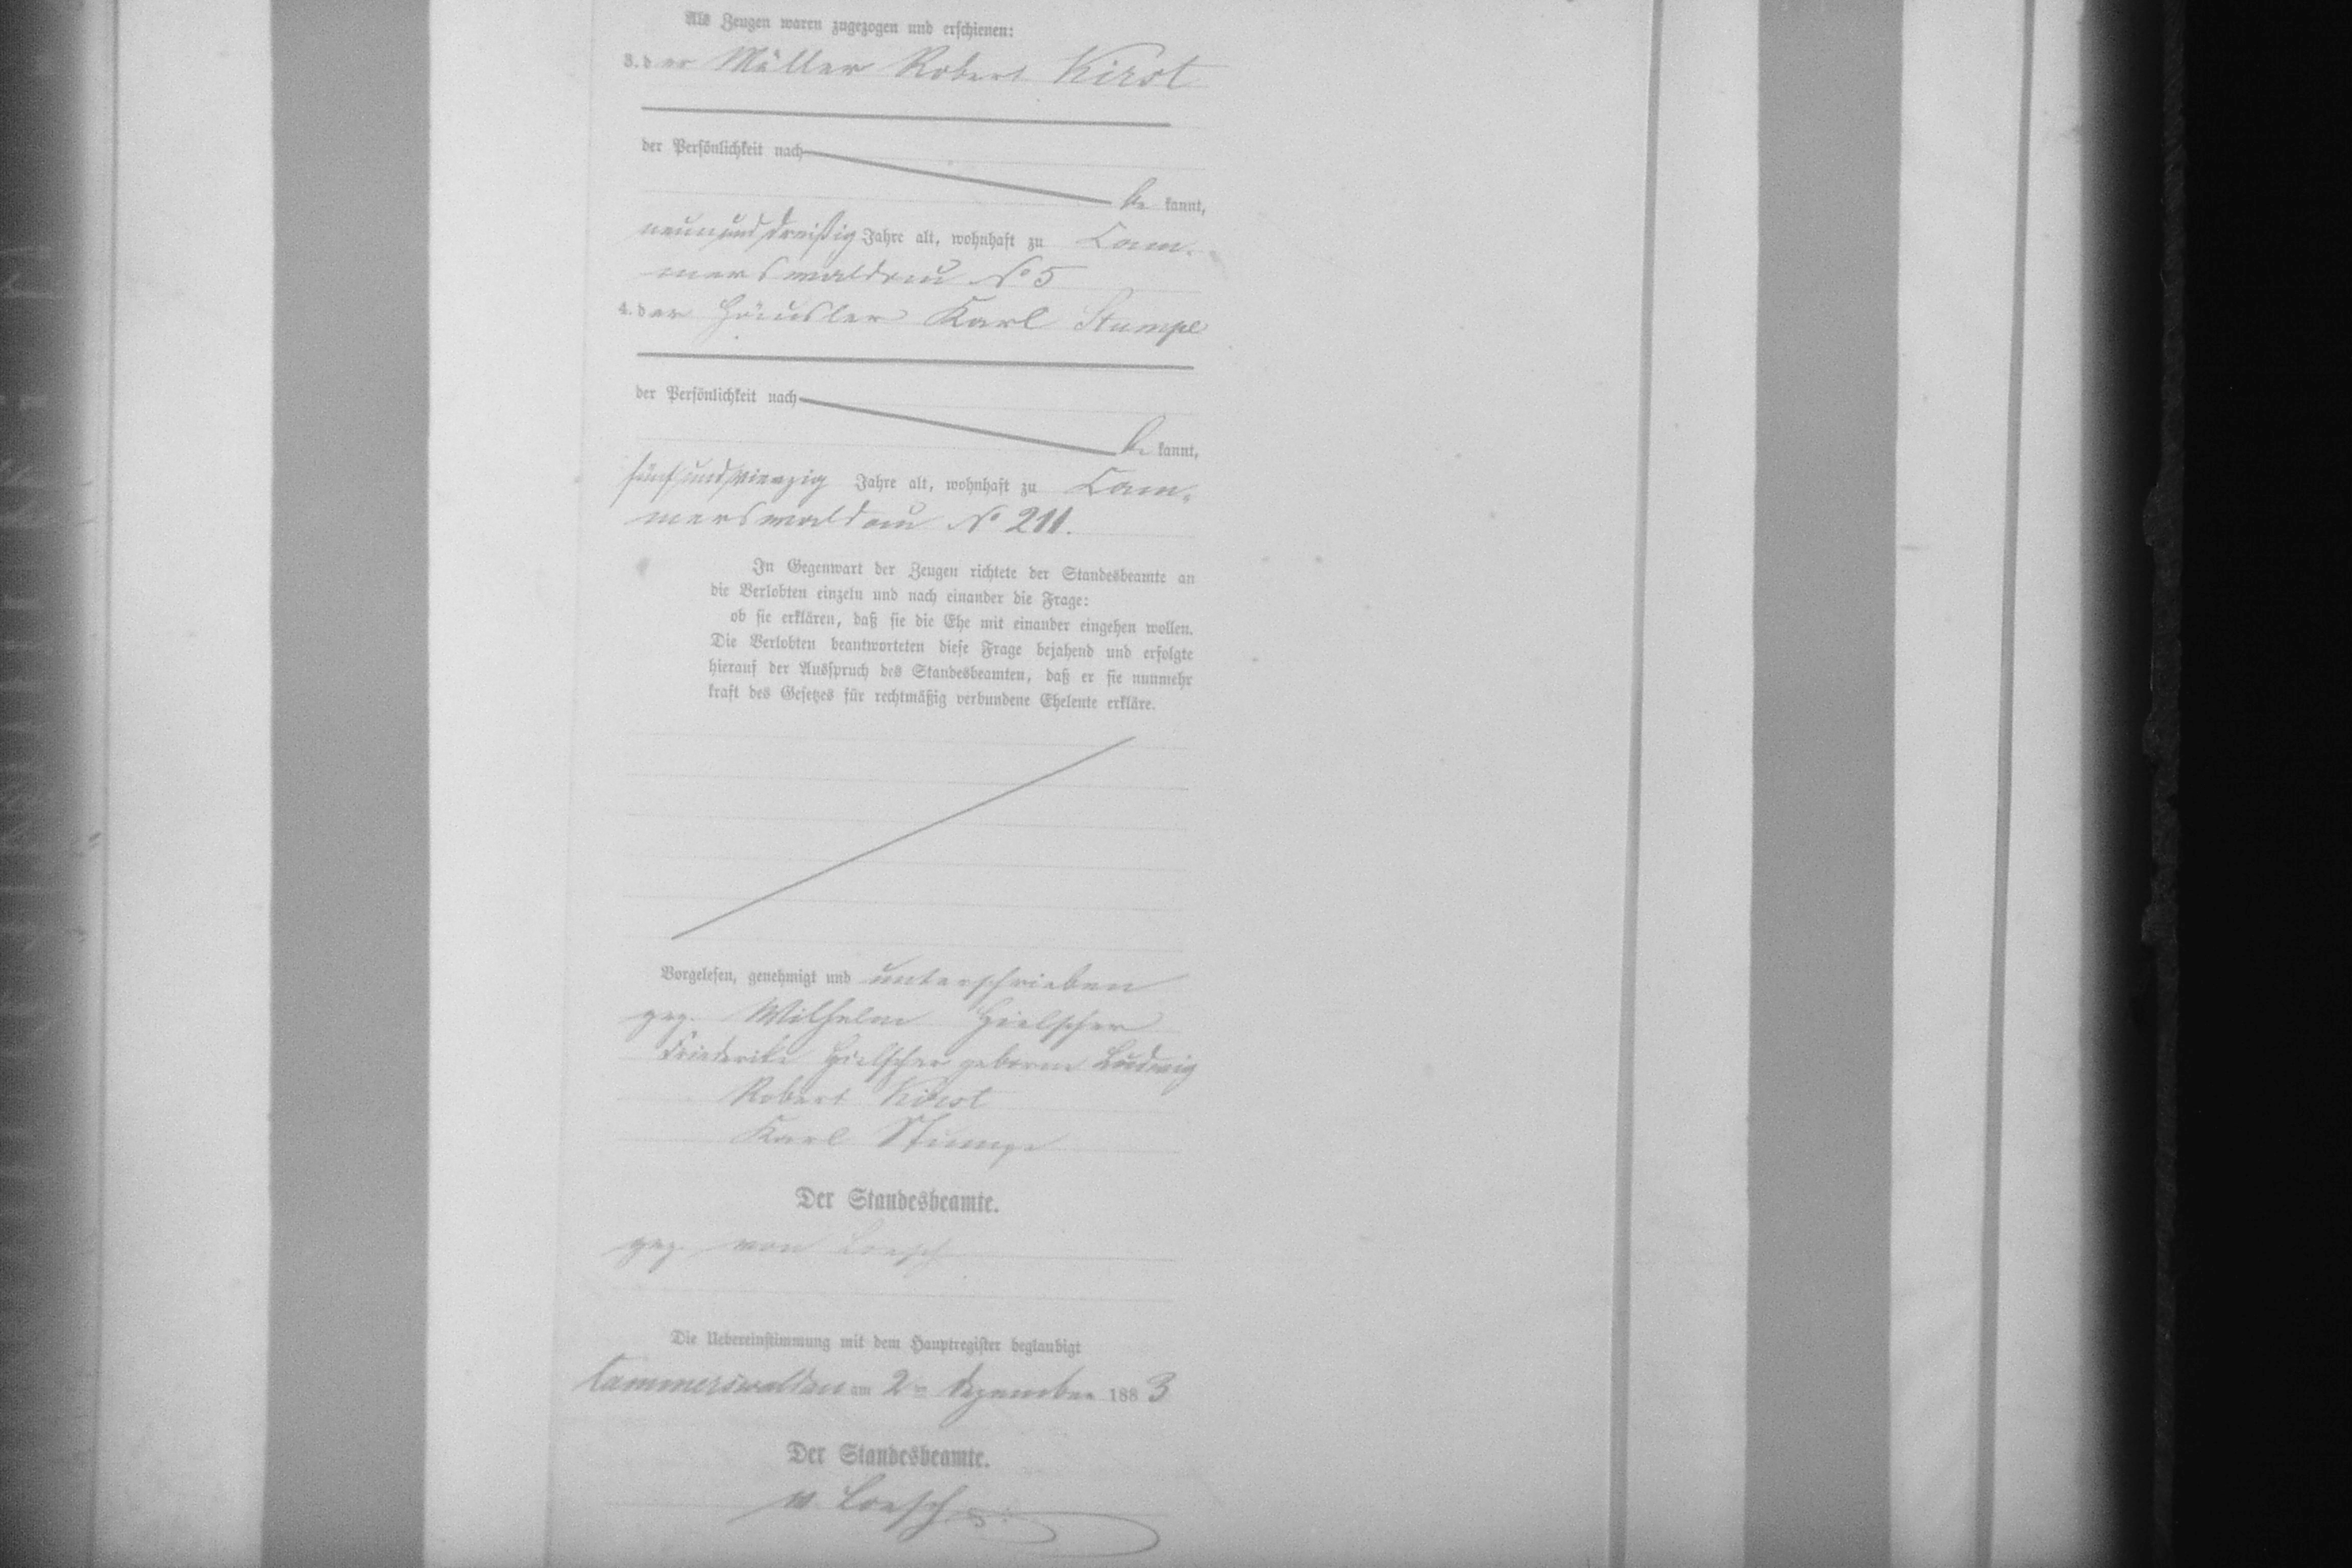 Als Zeugen waren zugezogen und erschienen:
3. der Müller Robert Kirst
der Persönlichkeit nach
be kannt,
neununddreißig Jahre alt, wohnhaft zu Cam-
merswaldau No 5
4. der Häusler Karl Stumpe
der Persönlichkeit nach
be kannt,
fünfundvierzig Jahre alt, wohnhaft zu Cam-
merswaldau No 211.
In Gegenwart der Zeugen richtete der Standesbeamte an
die Verlobten einzeln und nach einander die Frage:
ob sie erklären, daß sie die Ehe mit einander eingehen wollen.
Die Verlobten beantworteten diese Frage bejahend und erfolgte
hierauf der Ausspruch des Standesbeamten, daß er sie nunmehr
kraft des Gesetzes für rechtmäßig verbundene Eheleute erkläre.
Vorgelesen, genehmigt und unterschrieben
gez. Wilhelm Hielscher
Friederike Hielscher geborne Ludwig
Robert Kirst
Karl Stumpe
Der Standesbeamte.
gez. von Loesch
Die Uebereinstimmung mit dem Hauptregister beglaubigt
Cammerswaldau am 2ten Dezember 1883
Der Standesbeamte.
v. Loesch